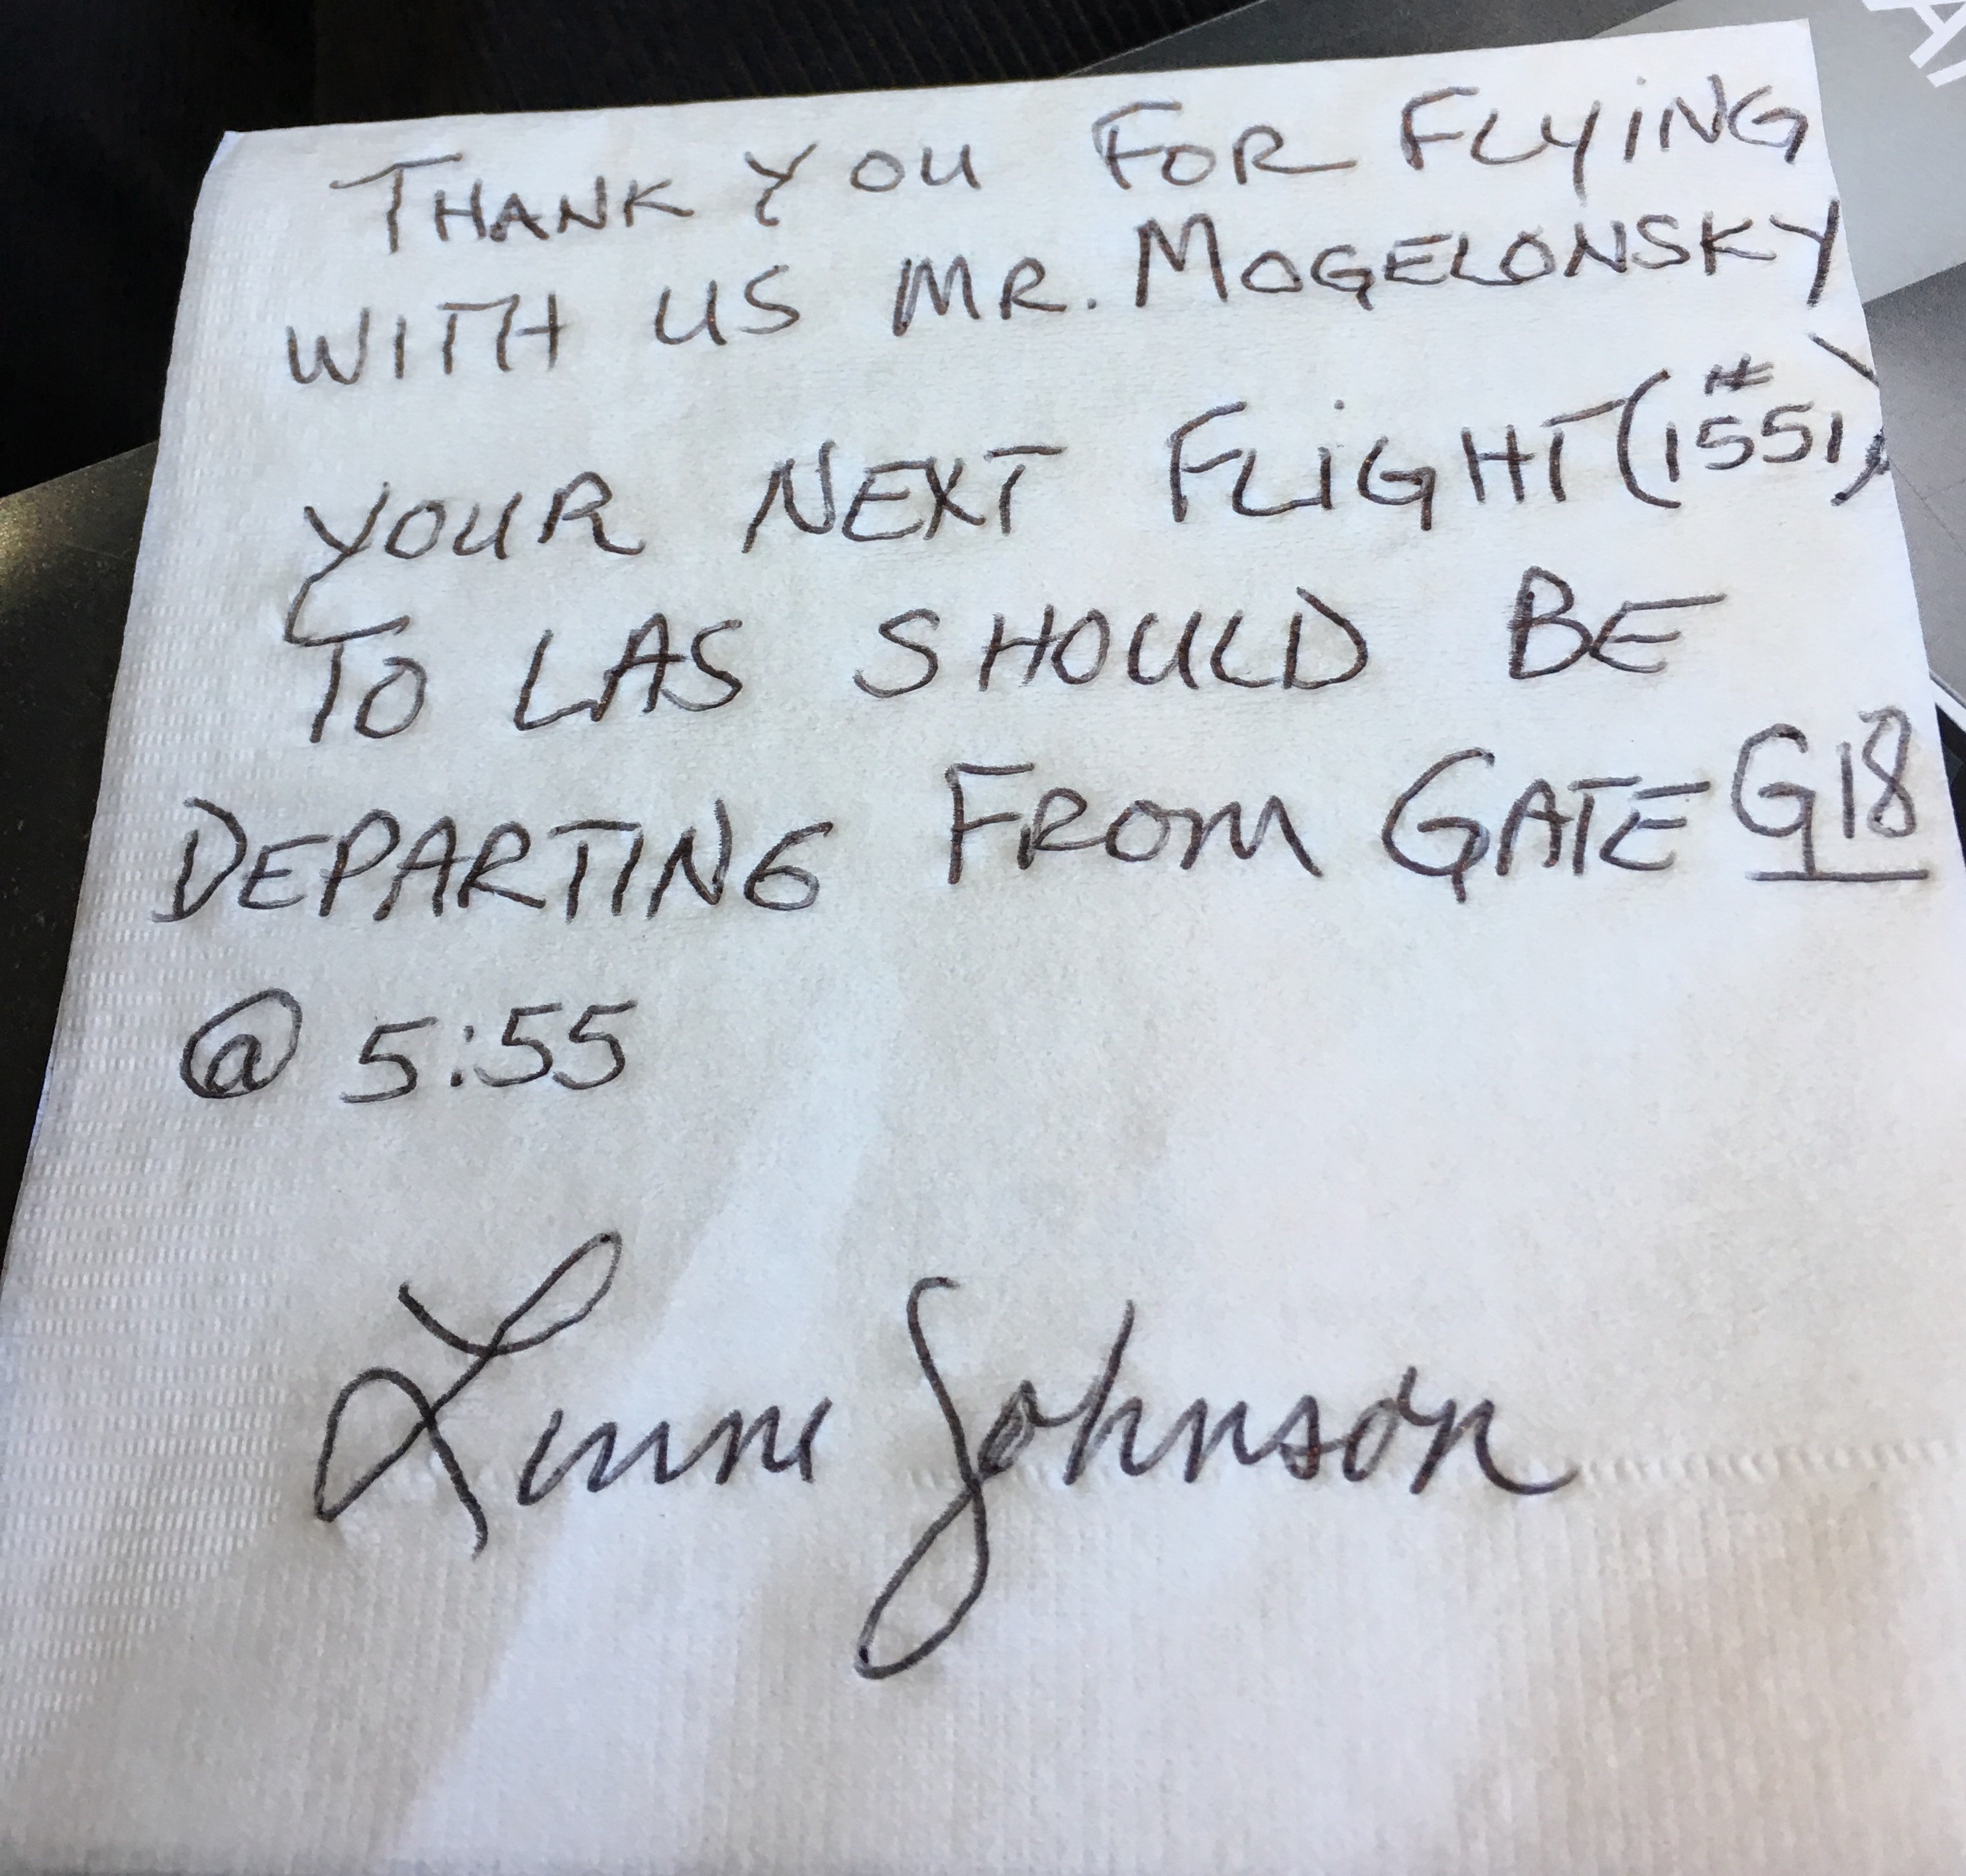 THANK YOU FOR FLYiNG
WITH US MR. MOGELONSKY
YOUR NEXT FLiGHT (#1551)
TO LAS SHOULD BE
DEPARTING FROM GATE G18
@ 5:55
Johnson